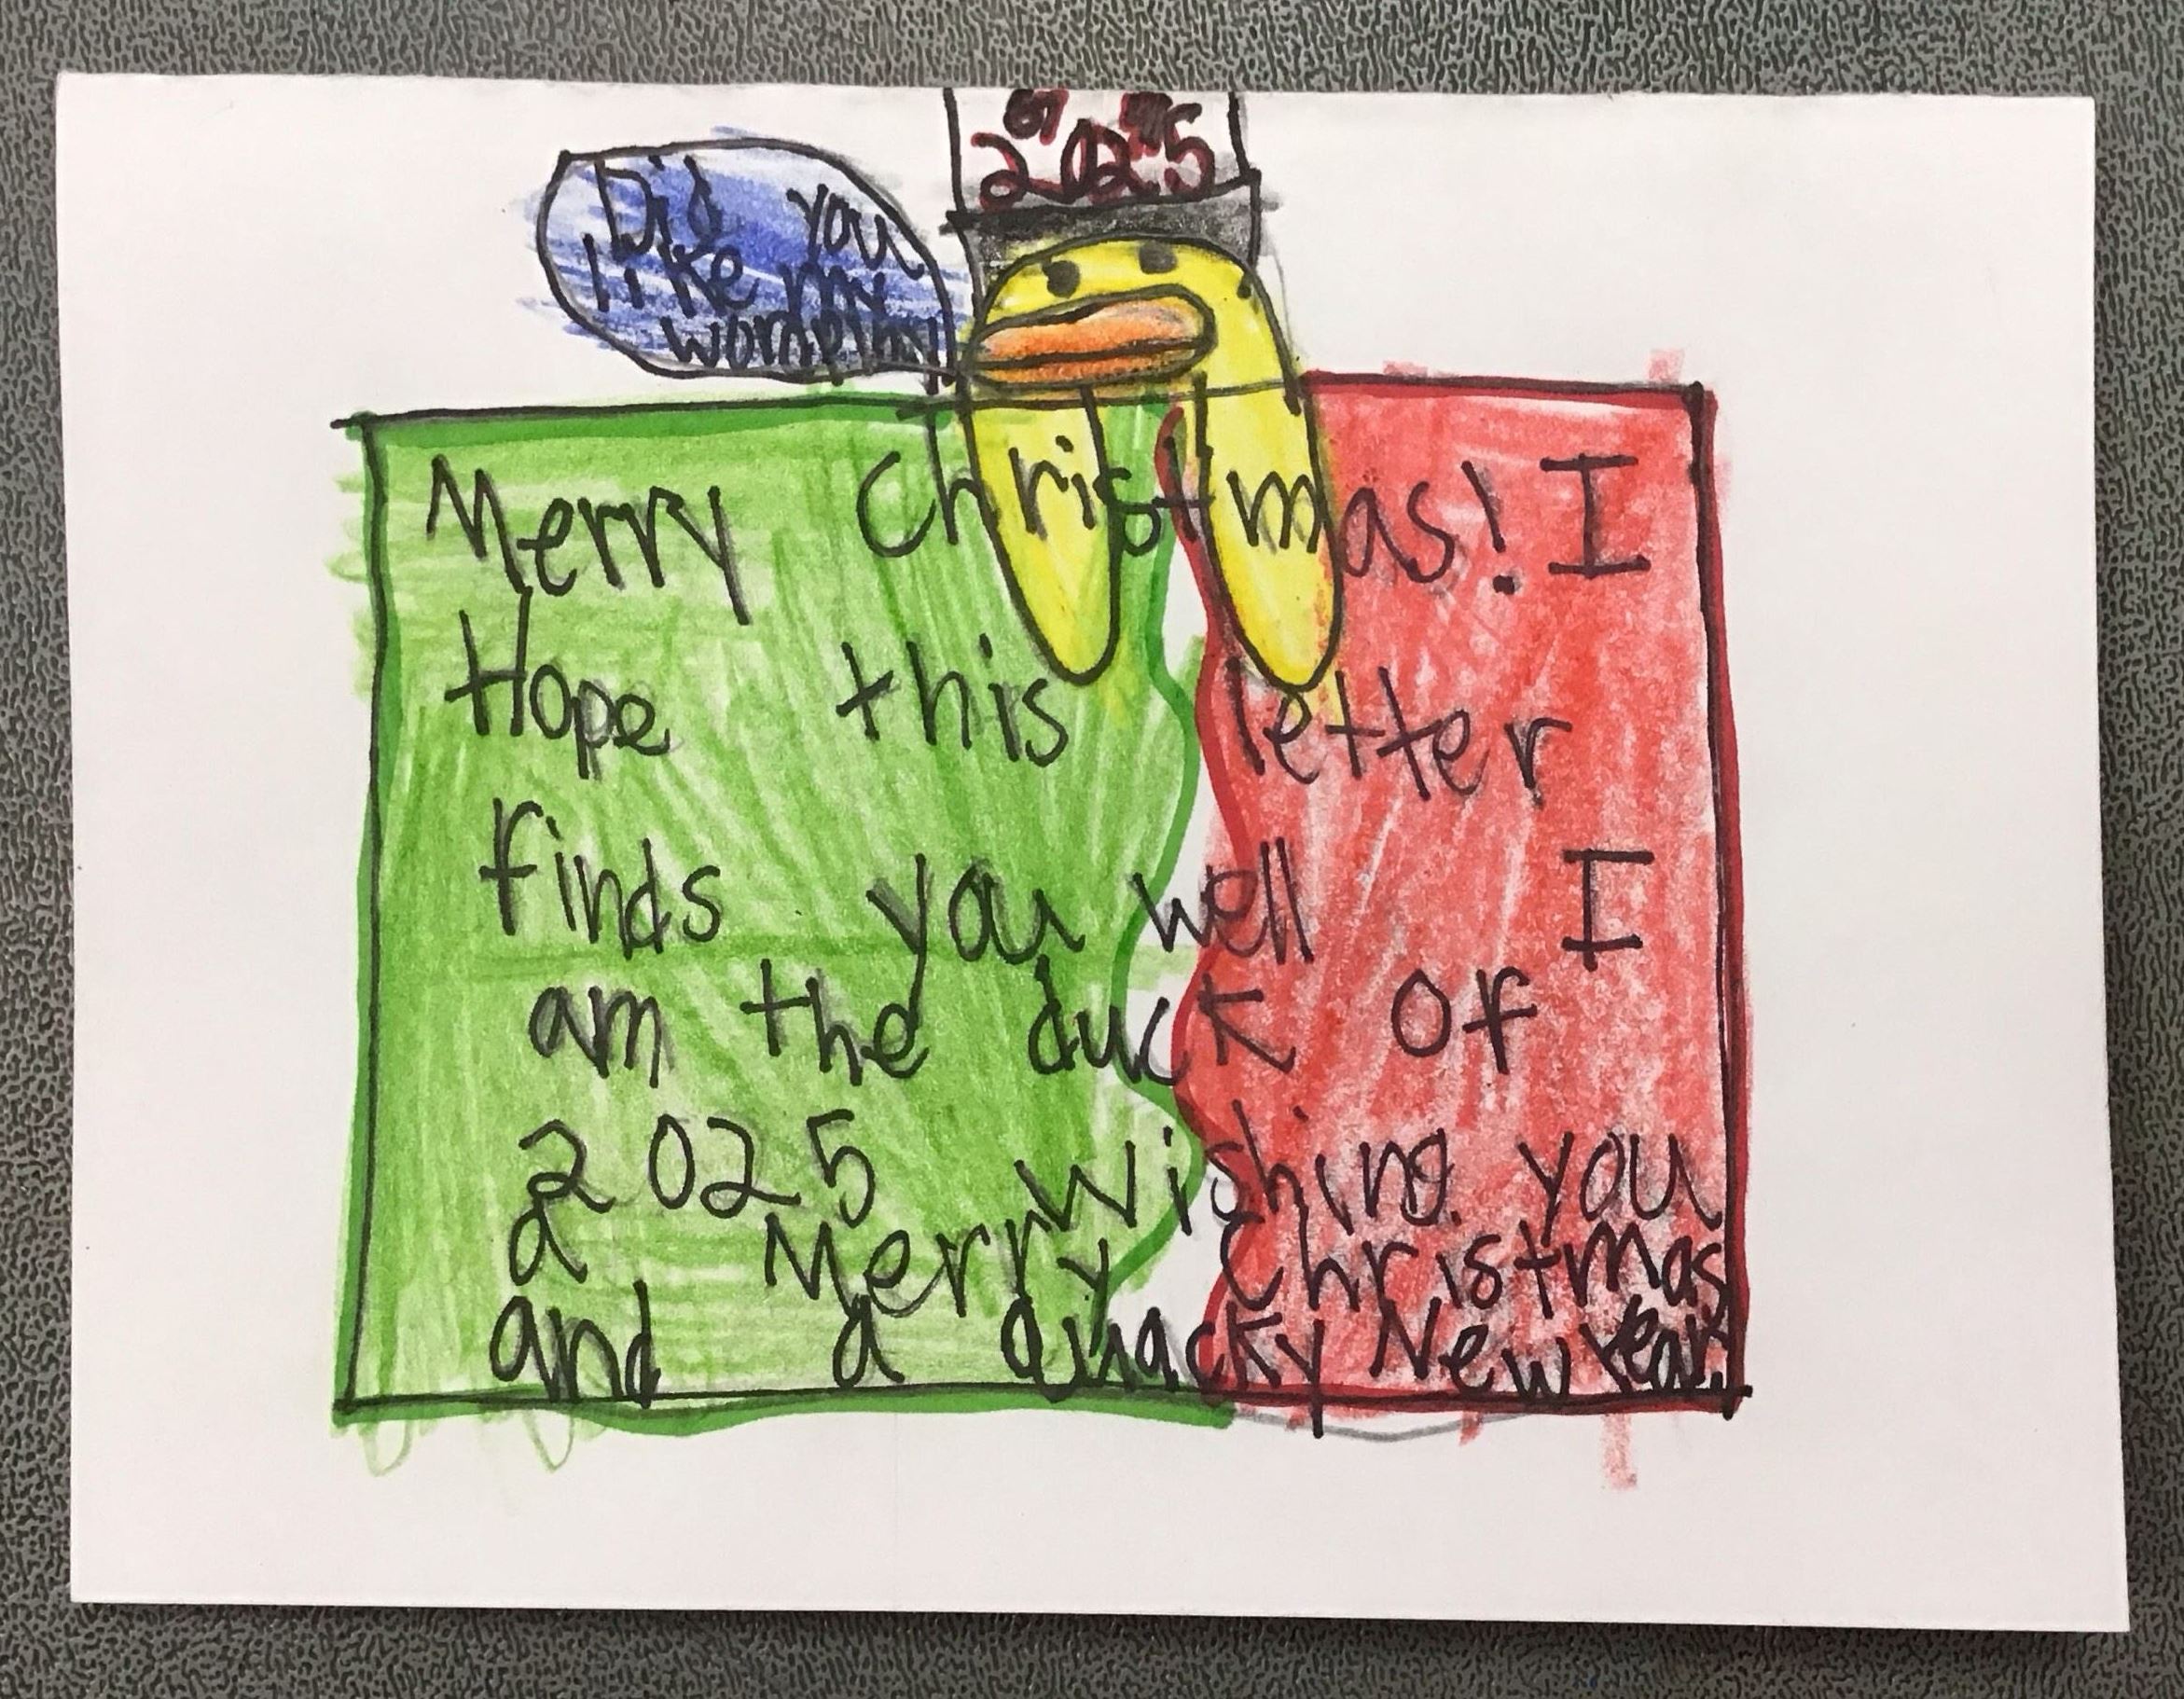 2025
Did you
like my
Merry Christmas! I
Hope this letter
finds you well I
am the duck of
2025 wishing you
a Merry Christmas
and a quacky New Year.